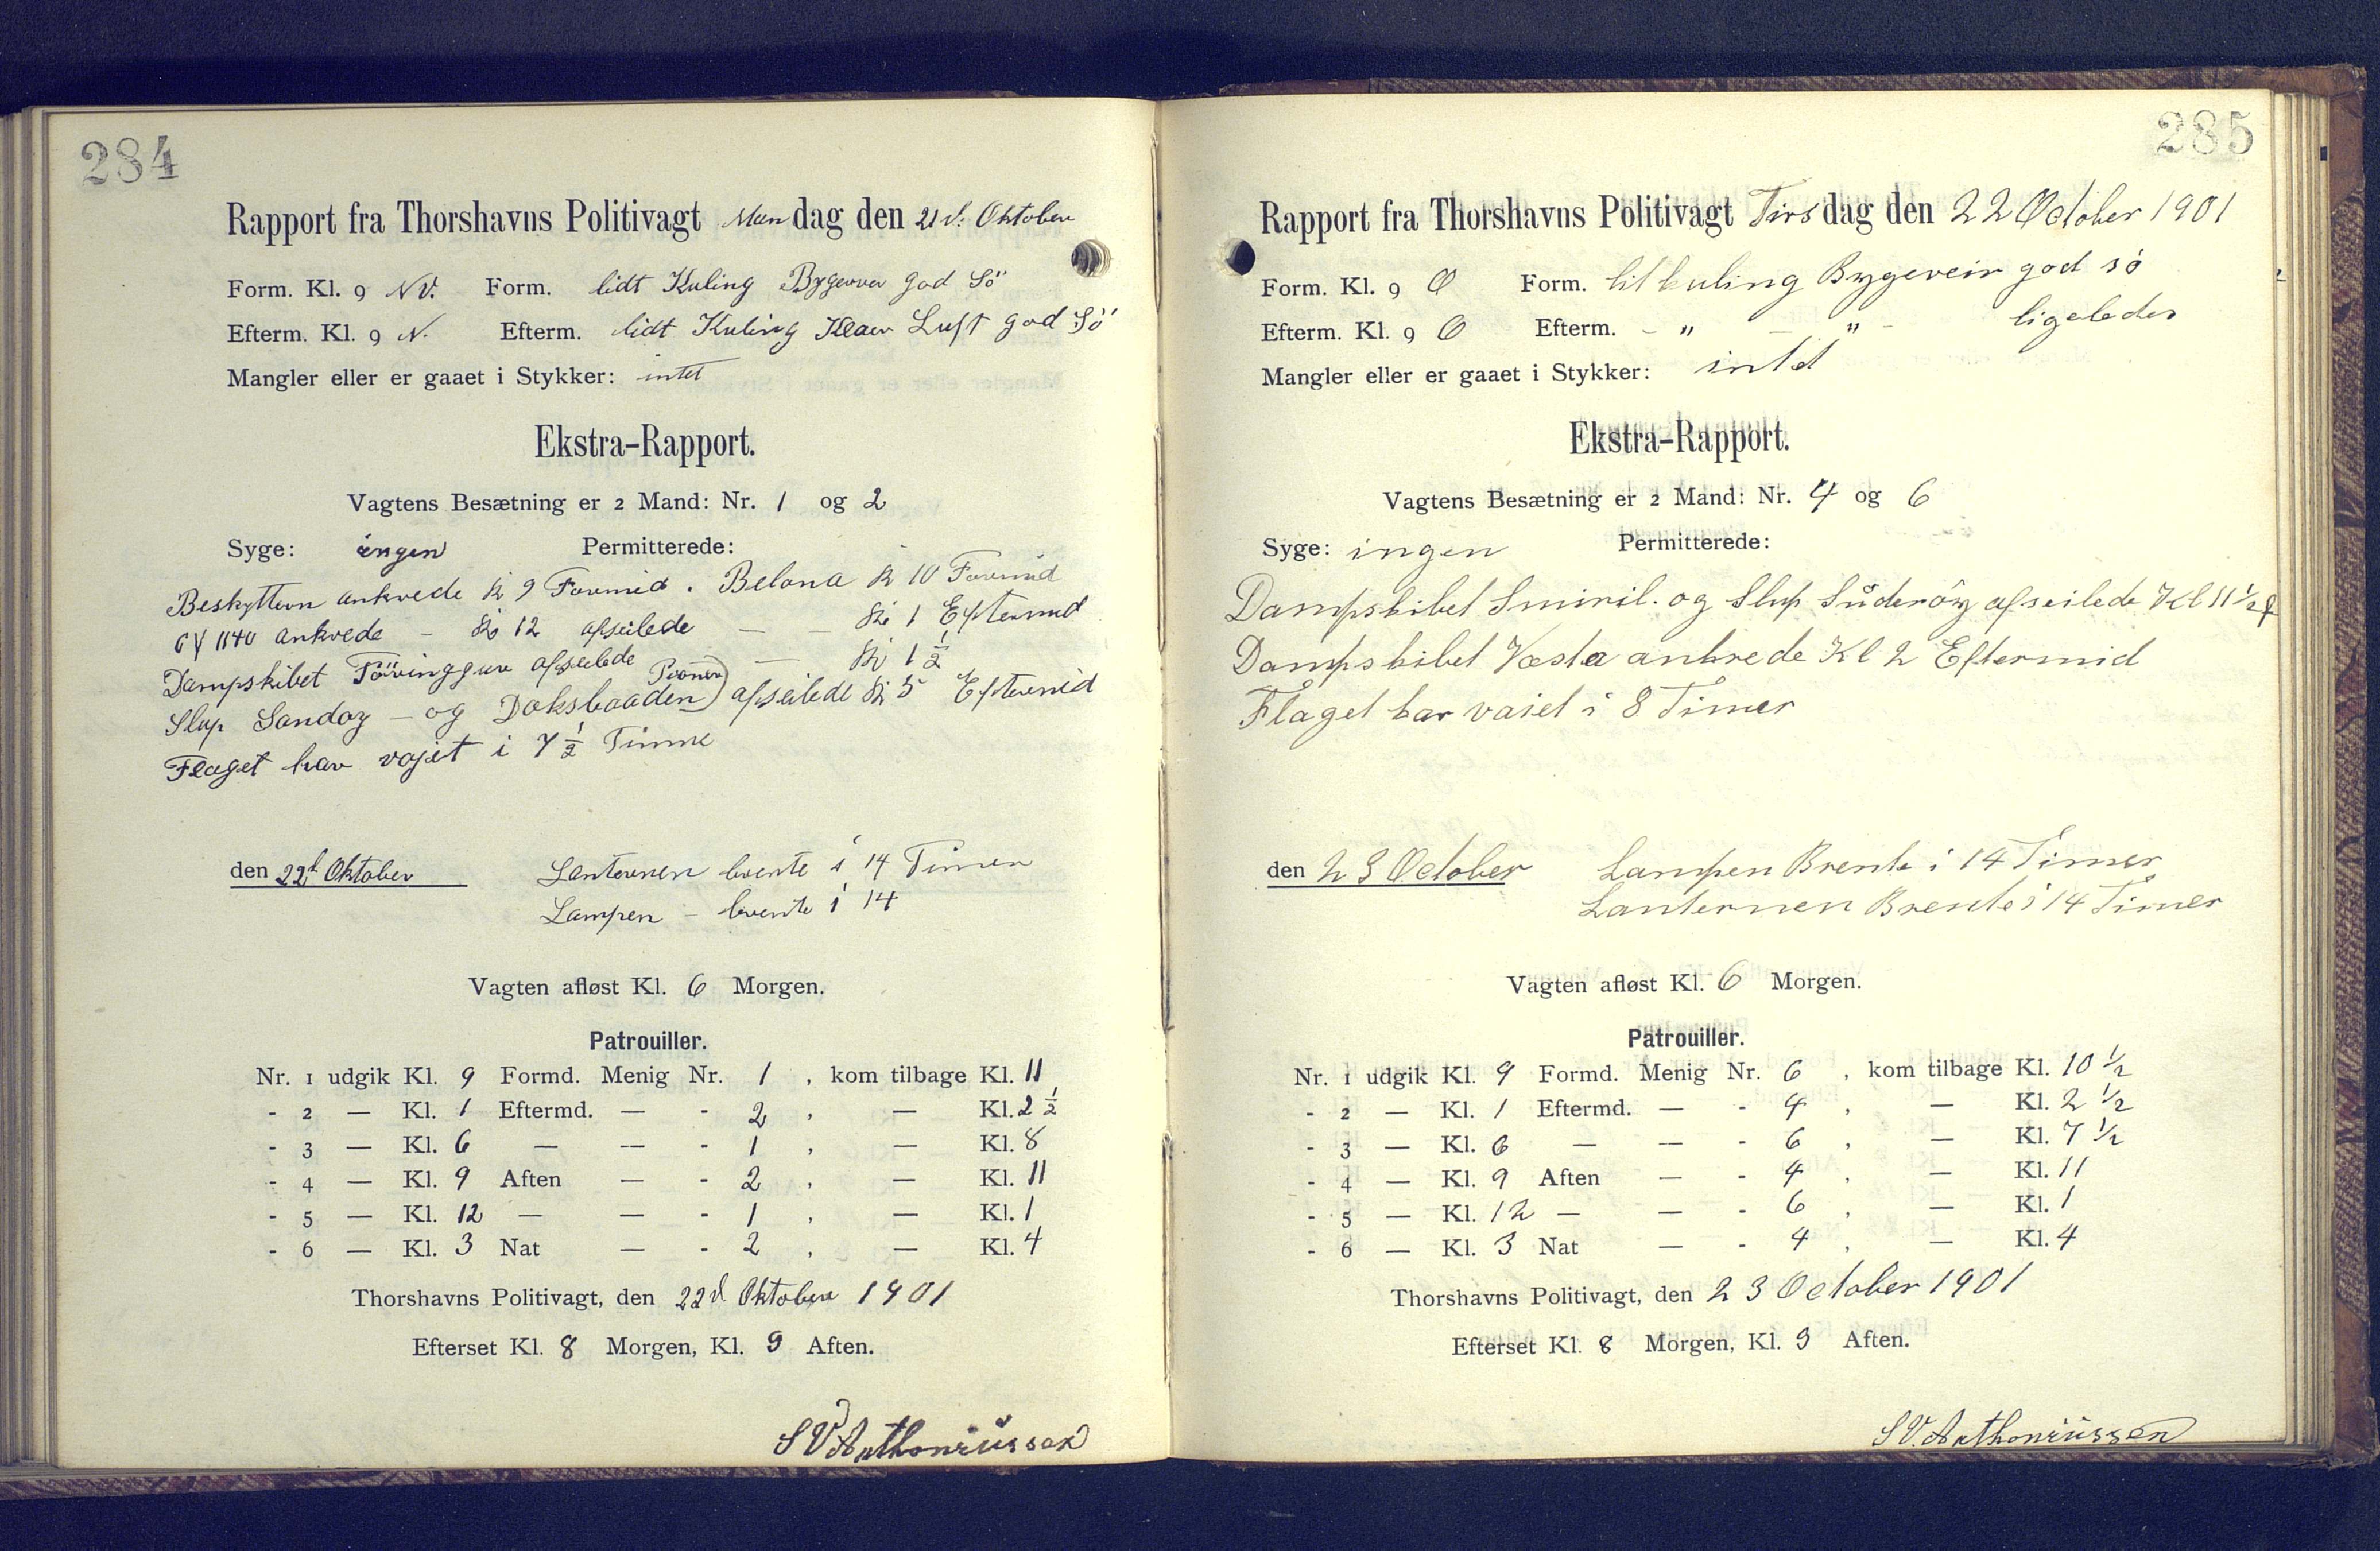 284
Rapport fra Thorshavns Politivagt Man dag den 21d. Oktober
Form. Kl. 9 NV. Form. lidt Kuling Bygever god Sö
Efterm. Kl. 9 N. Efterm. lidt Kuling Klaer Luft god Sö
Mangler eller er gaaet i Stykker: intet
Ekstra-Rapport.
Vagtens Besætning er 2 Mand: Nr. 1 og 2
Syge: ingen Permitterede:
Beskyttern ankrede Kl 9 Formid. Belona Kl 10 Formid
GY 1140 ankrede - Kl 12 afseilede - - Kl 1 Eftermid
Dampskibet Föringgur afseilede - Kl 1 1/2
Slup Sandoy - og Doksbaaden (Pioner) afseilede Kl 5 Eftermid
Flaget har vajet i 7 1/2 Time
den 22d Oktober Lanternen brente i 14 Timer
Lampen - brente i 14
Vagten afløst Kl. 6 Morgen.
Patrouiller.
Nr. 1 udgik Kl. 9 Formd. Menig Nr. 1, kom tilbage Kl. 11
- 2 — Kl. 1 Eftermd. — - 2, — Kl. 2 1/2
- 3 — Kl. 6 — — - 1, — Kl. 8
- 4 — Kl. 9 Aften — - 2, — Kl. 11
- 5 — Kl. 12 — — - 1, — Kl. 1
- 6 — Kl. 3 Nat — - 2, — Kl. 4
Thorshavns Politivagt, den 22d Oktober 1901
Efterset Kl. 8 Morgen, Kl. 9 Aften.
S V Anthoniussen
285
Rapport fra Thorshavns Politivagt Tirs dag den 22 October 1901
Form. Kl. 9 O Form. lit kuling Bygeveir god sö
Efterm. Kl. 9 O Efterm. - " - " - ligeledes
Mangler eller er gaaet i Stykker: intet
Ekstra-Rapport.
Vagtens Besætning er 2 Mand: Nr. 4 og 6
Syge: ingen Permitterede:
Dampskibet Smiril. og Slup Suderöy afseilede Kl 11 1/2 f
Dampskibet Vesta ankrede Kl 2 Eftermid
Flaget har vaiet i 8 Timer
den 23 October Lampen Brente i 14 Timer
Lanternen Brente i 14 Timer
Vagten afløst Kl. 6 Morgen.
Patrouiller.
Nr. 1 udgik Kl. 9 Formd. Menig Nr. 6, kom tilbage Kl. 10 1/2
- 2 — Kl. 1 Eftermd. — - 4, — Kl. 2 1/2
- 3 — Kl. 6 — — - 6, — Kl. 7 1/2
- 4 — Kl. 9 Aften — - 4, — Kl. 11
- 5 — Kl. 12 — — - 6, — Kl. 1
- 6 — Kl. 3 Nat — - 4, — Kl. 4
Thorshavns Politivagt, den 23 October 1901
Efterset Kl. 8 Morgen, Kl. 9 Aften.
S V. Anthoniussen